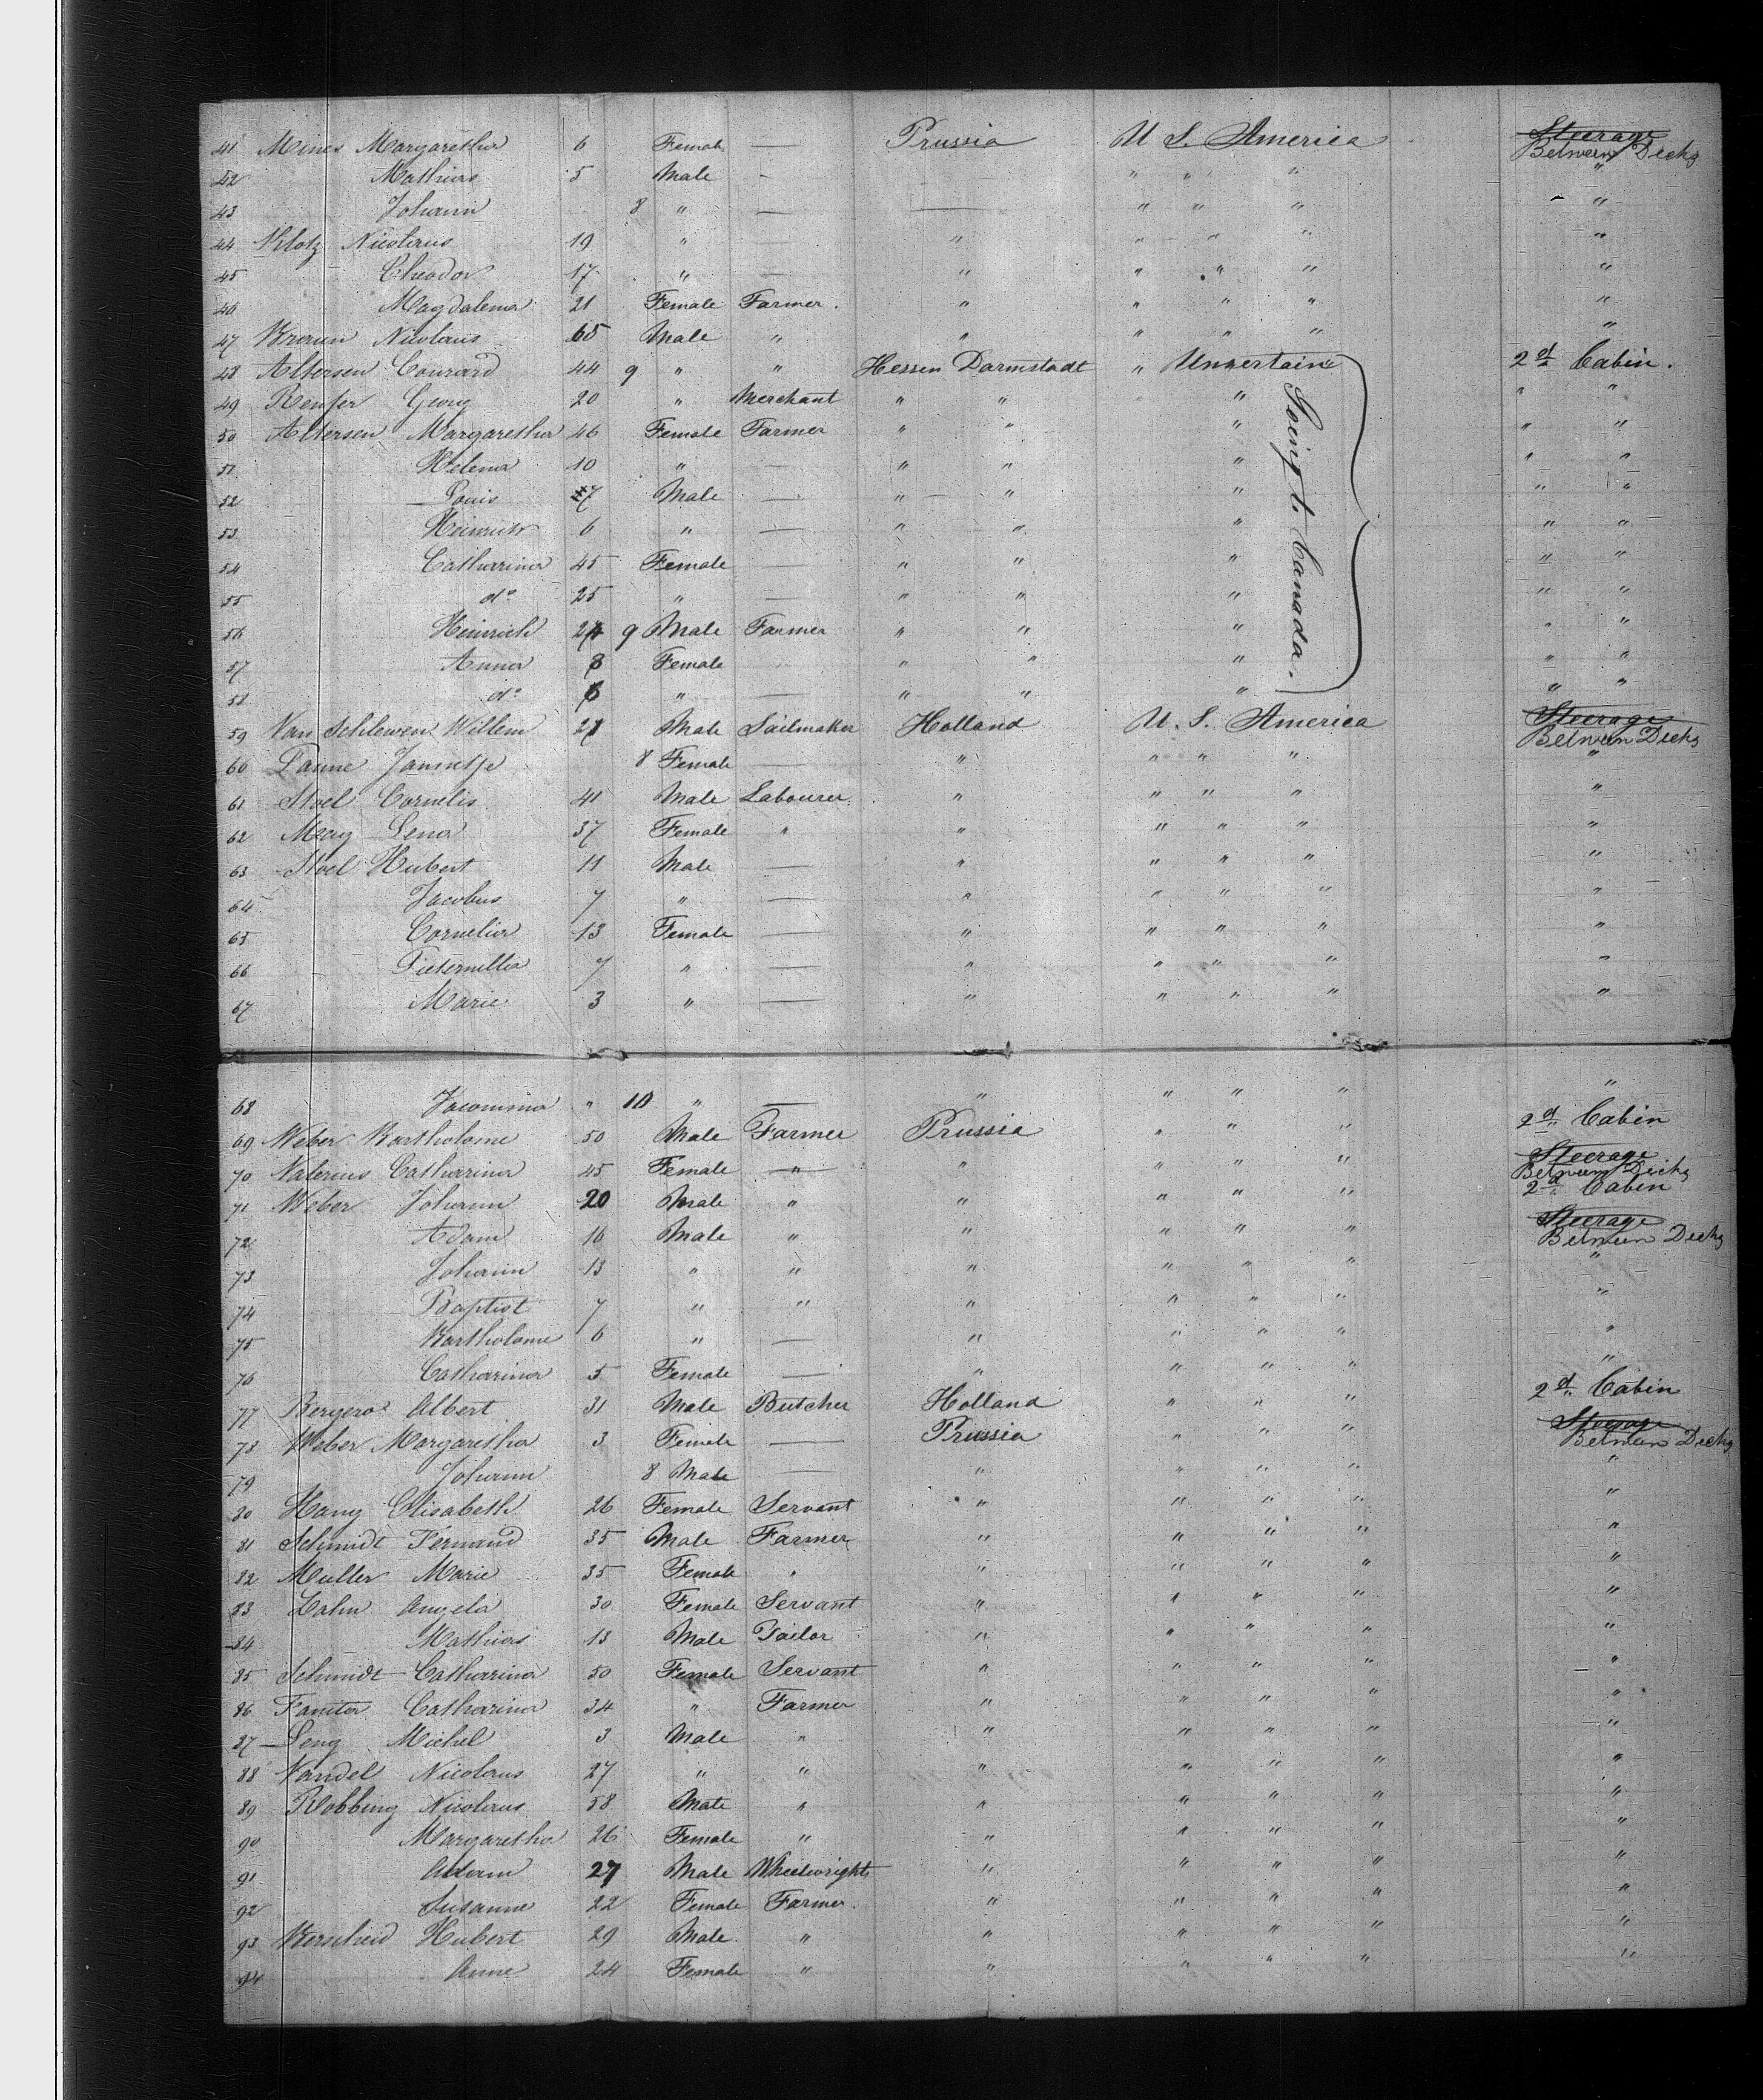 41 Mines Margaretha 6 Female — Prussia U S. America Steerage
Between Decks
42 Mathias 5 Male - " " " "
43 Johann 8 " — — " " " - "
44 Klotz Nicolaus 19 " " " " " "
45 Theodor 17 " — " " " " "
46 Magdalena 21 Female Farmer. " " " " "
47 Braun Nicolaus 65 Male " " " " " "
48 Altersen Conrard 44 9 " " Hessen Darmstadt " Uncertain 2d Cabin.
Going to Canada.
49 Georg 20 " Merchant " " " " "
50 Altersen Margaretha 46 Female Farmer " " " " "
51 Helena 10 " — " " " " "
52 Louis 7 Male — " " " " "
53 Heinrich 6 " — " " " " "
54 Catharina 45 Female — " " " " "
55 do 25 " — " " " " "
56 Heinrich 24 9 Male Farmer " " " " "
57 Anna 8 Female " " " " "
58 do 6 " — " " " " "
59 Van Schlewen Willem 28 Male Sailmaker Holland U. S. America Steerage
Between Decks
60 Janntje 8 Female — " " " " "
61 Stoel Cornelis 41 Male Labourer " " " " "
62 Lena 37 Female " " " " " "
63 Stoel Hubert 11 Male — " " " " "
64 Jacobus 7 " — " " " " "
65 Cornelia 13 Female — " " " " "
66 Pieternella 7 " — " " " " "
67 Marie 3 " — " " " " "
68 Jacomina " 10 " — " " " " "
69 Weber Bartholome 50 Male Farmer Prussia " " " 2d Cabin
70 Valerius Catharina 45 Female " " " " " Steerage
Between Decks
71 Weber Johann 20 Male " " " " " 2d Cabin
72 Adam 16 Male " " " " " Steerage
Between Decks
73 Johann 13 " " " " " " "
74 Baptist 7 " " " " " " "
75 Bartholome 6 " — " " " " "
76 Catharina 5 Female — " " " " "
77 Bergero Albert 31 Male Butcher Holland " " " 2d Cabin
78 Weber Margaretha 3 Female — Prussia " " " Steerage
Between Decks
79 Johann 8 Male — " " " " "
80 Hany Elisabeth 26 Female Servant " " " " "
81 Schmidt Fernand 35 Male Farmer " " " " "
82 Muller Marie 35 Female " " " " " "
83 Lahn Angela 30 Female Servant " " " " "
84 Mathias 13 Male Tailor " " " " "
85 Schmidt Catharina 50 Female Servant " " " " "
86 Catharina 34 " Farmer " " " " "
87 Leny Michel 3 Male " " " " " "
88 Vandel Nicolaus 27 " " " " " " "
89 Robbing Nicolaus 58 Male " " " " " "
90 Margaretha 26 Female " " " " " "
91 Adam 27 Male Wheelwright " " " " "
92 Susanne 22 Female Farmer. " " " " "
93 Kerscheid Hubert 29 Male " " " " " "
94 Anne 24 Female " " " " " "